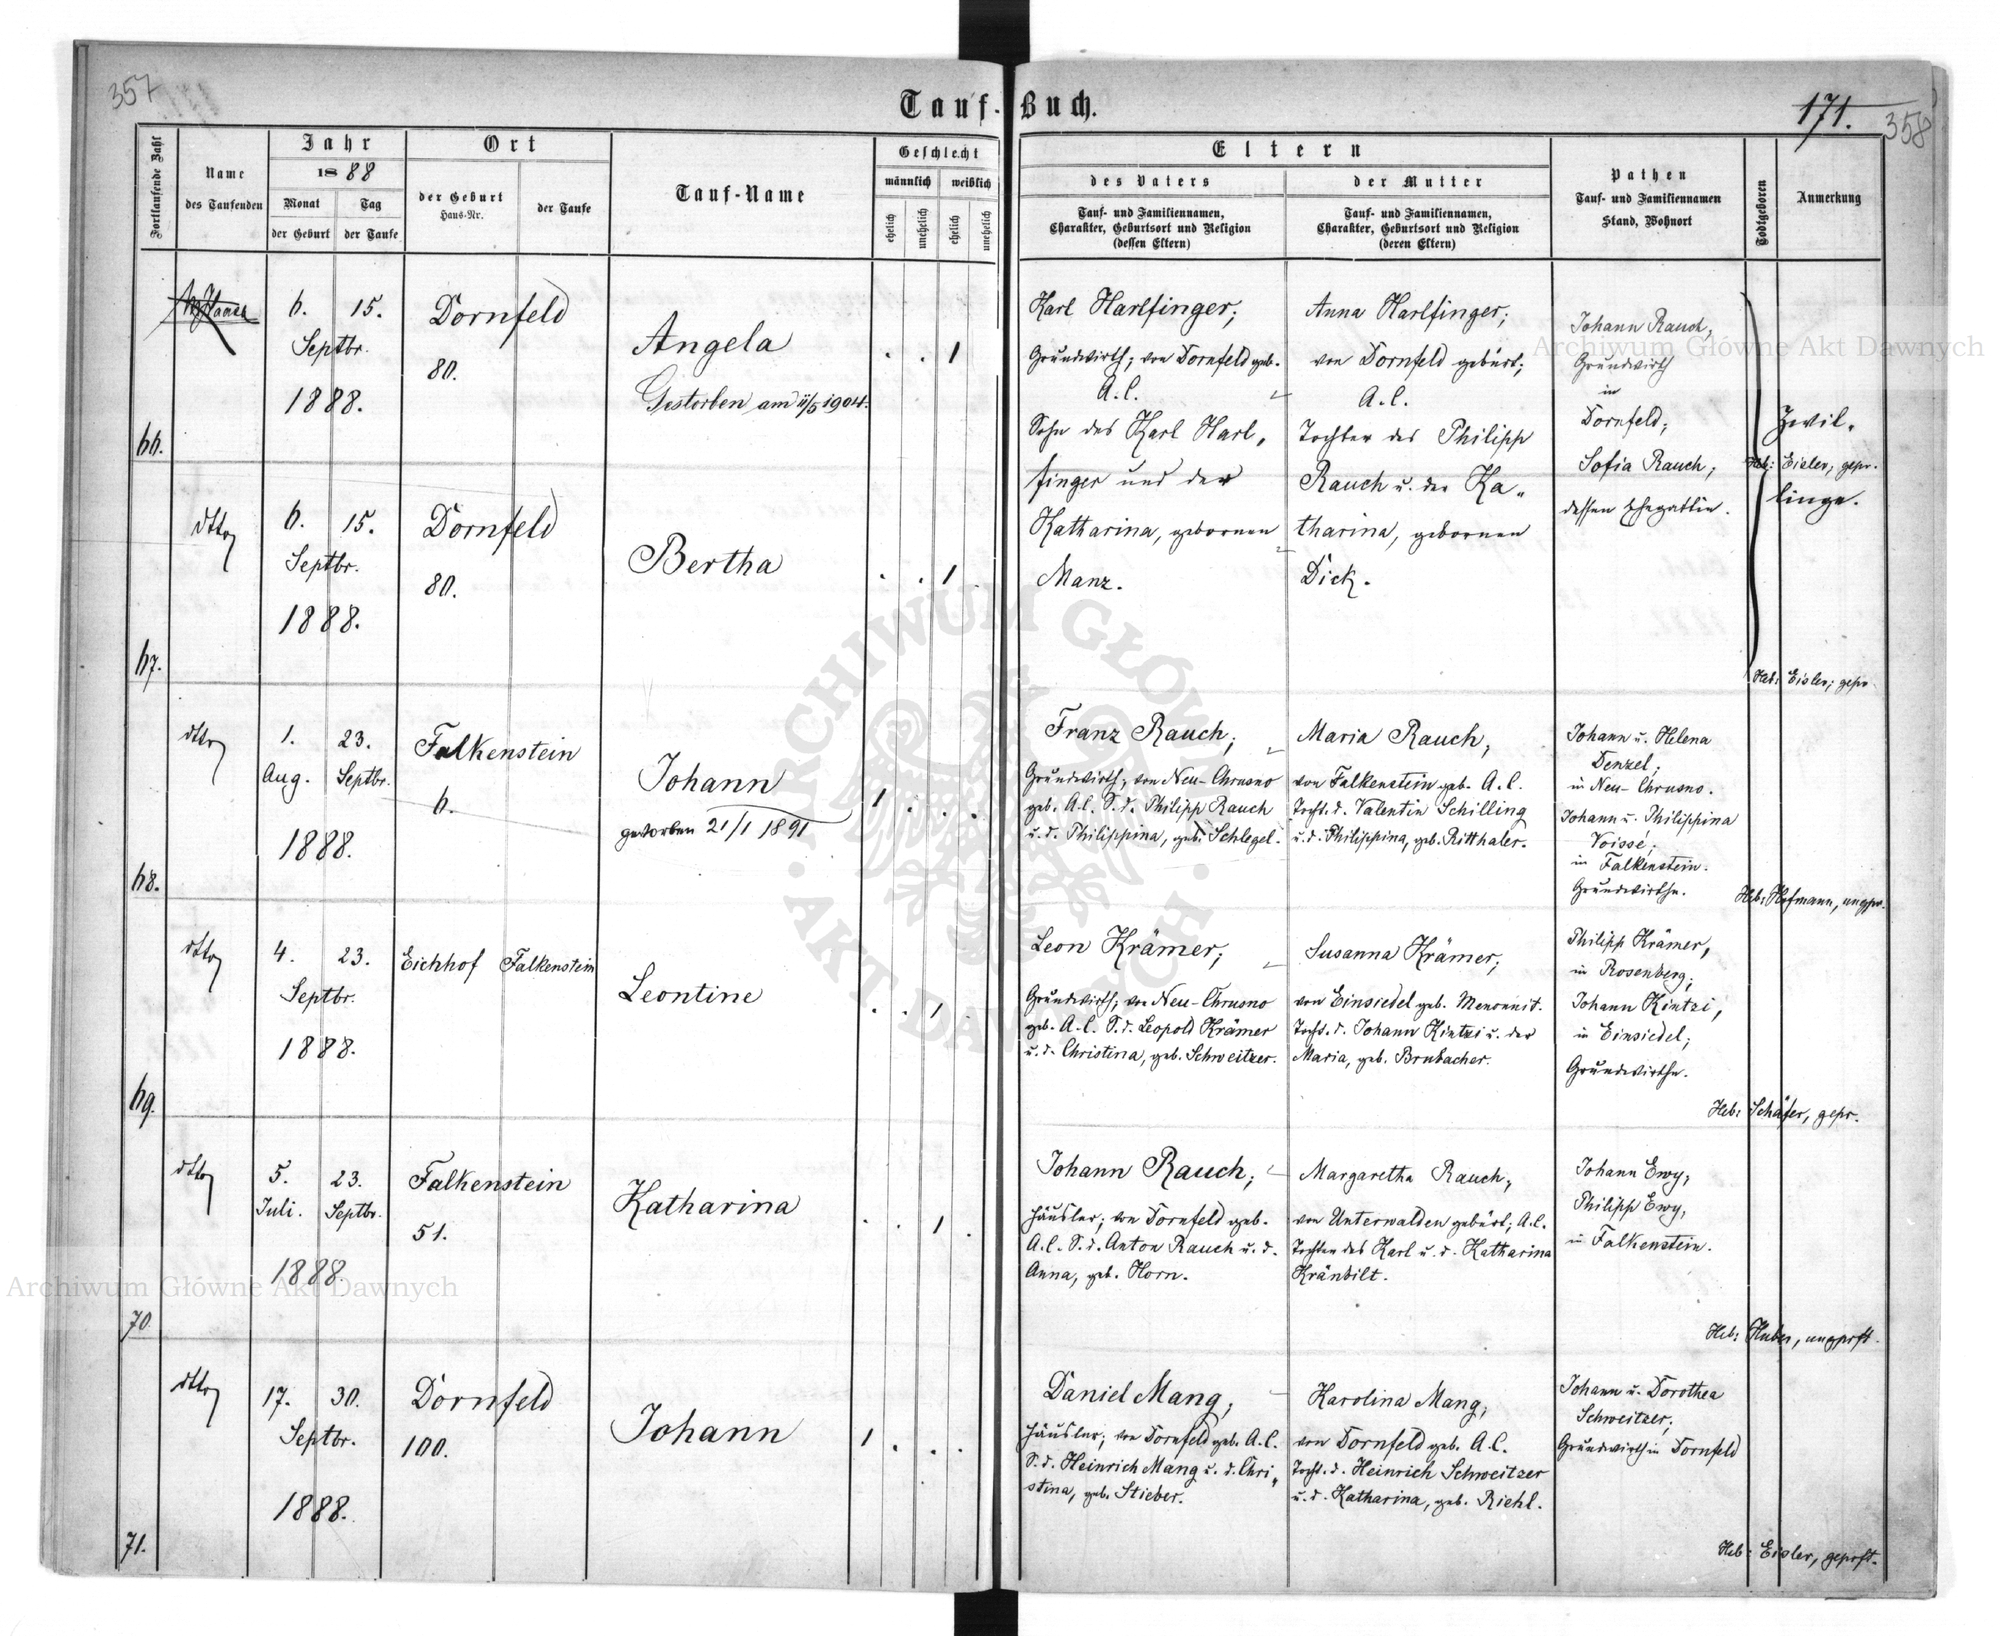 357
Tauf-Buch.
171.
358
Fortlaufende Zahl
Name
des Taufenden
Jahr
1888
Monat
Tag
der Geburt
der Taufe
Ort
der Geburt
Haus-Nr.
der Taufe
Tauf-Name
Geschlecht
männlich
weiblich
ehelich
unehelich
ehelich
unehelich
Eltern
des Vaters
Tauf- und Familiennamen,
Charakter, Geburtsort und Religion
(dessen Eltern)
der Mutter
Tauf- und Familiennamen,
Charakter, Geburtsort und Religion
(deren Eltern)
Pathen
Tauf- und Familiennamen
Stand, Wohnort
Todtgeboren
Anmerkung
66.
6. 15.
Septbr.
1888.
Dornfeld
80.
Angela
Gestorben am 11/5 1904.
1
Karl Harlfinger;
Grundwirth; von Dornfeld geb.
A.C.
Sohn des Karl Harl-
finger und der
Katharina, gebornen
Manz.
Anna Harlfinger;
von Dornfeld gebürt;
A.C.
Tochter des Philipp
Rauch u. der Ka-
tharina, gebornen
Dick.
Johann Rauch,
Grundwirth
in
Dornfeld;
Sofia Rauch;
dessen Ehegattin.
Zwil-
Heb: Eisler; gepr.
linge.
67.
dtto
6. 15.
Septbr.
1888.
Dornfeld
80.
Bertha
1
Heb: Eisler; gepr
68.
dtto
1. 23.
Aug. Septbr.
1888.
Falkenstein
6.
Johann
gestorben 21/1 1891
1
Franz Rauch;
Grundwirth; von Neu-Chrusno
geb. A.C. S.d. Philipp Rauch
u.d. Philippina, geb. Schlegel.
Maria Rauch,
von Falkenstein geb. A.C.
Tocht. d. Valentin Schilling
u.d. Philippina, geb. Ritthaler.
Johann u. Helena
Denzel;
in Neu-Chrusno.
Johann u. Philippina
Voissé;
in Falkenstein.
Grundwirthe.
Heb: Hofmann, ungpr.
69.
dtto
4. 23.
Septbr.
1888.
Eichhof Falkenstein
Leontine
1
Leon Krämer;
Grundwirth; von Neu-Chrusno
geb. A.C. S.d. Leopold Krämer
u.d. Christina, geb. Schweitzer.
Susanna Krämer;
von Einsiedel geb. Menonnit.
Tocht. d. Johann Kintzi u. der
Maria, geb. Brubacher.
Philipp Krämer,
in Rosenberg;
Johann Kintzi,
in Einsiedel;
Grundwirthe.
Heb: Schäfer, gepr.
70.
dtto
5. 23.
Juli. Septbr.
1888.
Falkenstein
51.
Katharina
1
Johann Rauch;
Häusler; von Dornfeld geb.
A.C. S.d. Anton Rauch u.d.
Anna, geb. Horn.
Margaretha Rauch,
von Unterwalden gebürt; A.C.
Tochter des Karl u.d. Katharina
Kränbilt.
Johann Ewy,
Philipp Ewy,
in Falkenstein.
Heb: Huber, ungprft.
71.
dtto
17. 30.
Septbr.
1888.
Dornfeld
100.
Johann
1
Daniel Mang;
Häusler; von Dornfeld geb. A.C.
S.d. Heinrich Mang u.d. Chri-
stina, geb. Stieber.
Karolina Mang;
von Dornfeld geb. A.C.
Tocht. d. Heinrich Schweitzer
u.d. Katharina, geb. Riehl.
Johann u. Dorothea
Schweitzer;
Grundwirth in Dornfeld
Heb: Eisler, geprft.
Archiwum Główne Akt Dawnych
Archiwum Główne Akt Dawnych
ARCHIWUM GŁÓWNE
AKT DAWNYCH